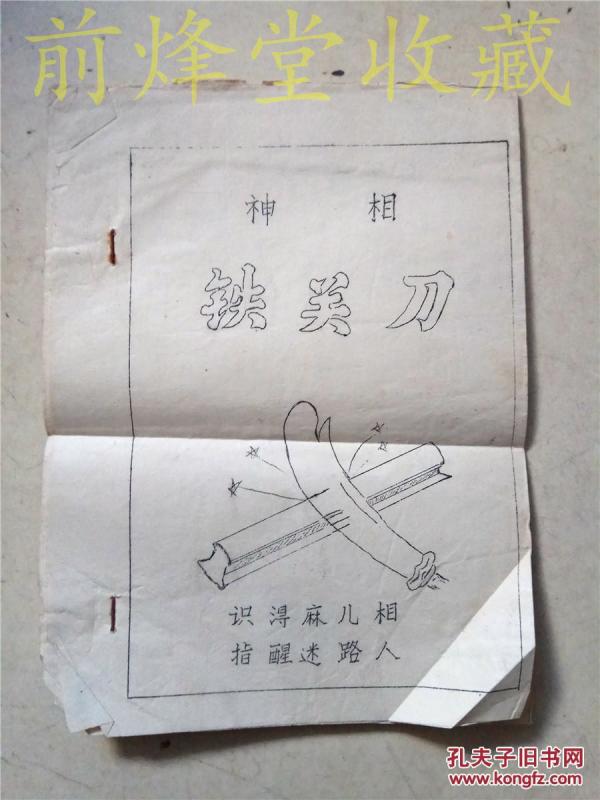 前烽堂收藏
神 相
铁关刀
识淂麻儿相
指醒迷路人
孔夫子旧书网
www.kongfz.com